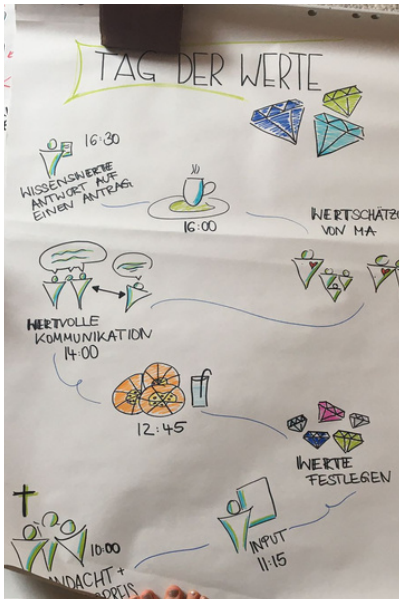 TAG DER WERTE
16:30
WISSENSWERTE
ANTWORT AUF
EINEN ANTRAG
16:00
WERTSCHÄTZ
VON MA
WERTVOLLE
KOMMUNIKATION
14:00
12:45
WERTE
FESTLEGEN
INPUT
11:15
10:00
NDACHT +
PREIS